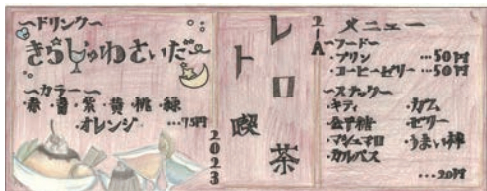 〜ドリンク〜
きらしゅわさいだー
〜カラー〜
・赤・青・紫・黄・桃・緑
・オレンジ …75円
2023
レトロ喫茶
2-A
メニュー
〜フード〜
・プリン …50円
・コーヒーゼリー …50円
〜スナック〜
・キティ ・ガム
・金平糖 ・ゼリー
・マシュマロ ・うまい棒
・カルパス
…20円